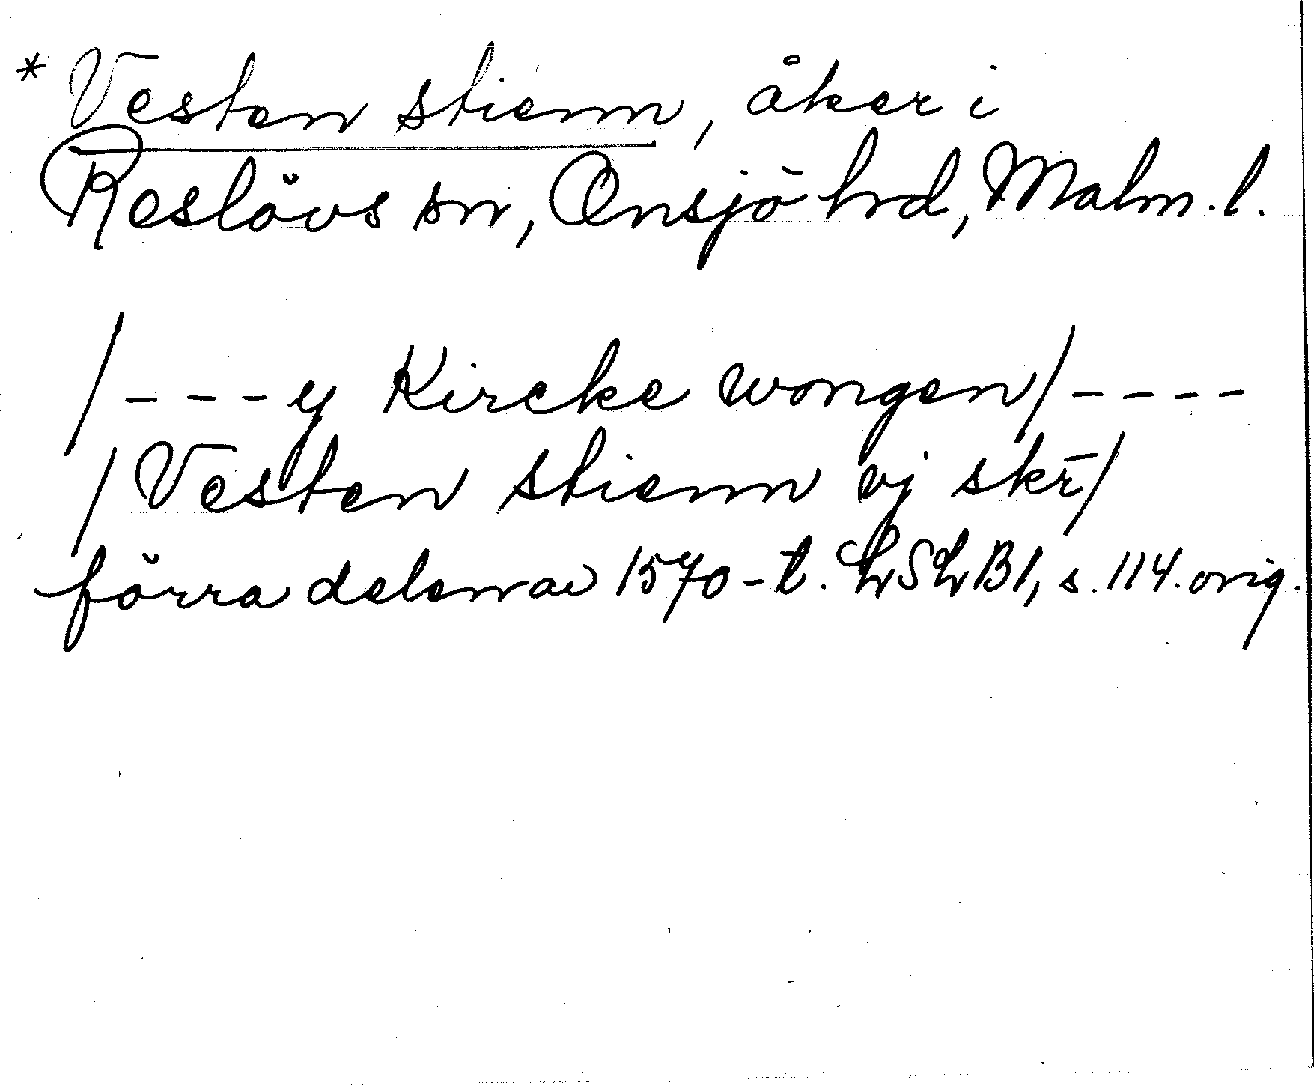 * Vesten stienn, åker i
Reslövs sn, Onsjö hrd, Malm. l.
/---y Kircke wongen/----
/Vesten stienn vj skr̄/
förra delen av 1570-t. LSLB1, s. 114. orig.